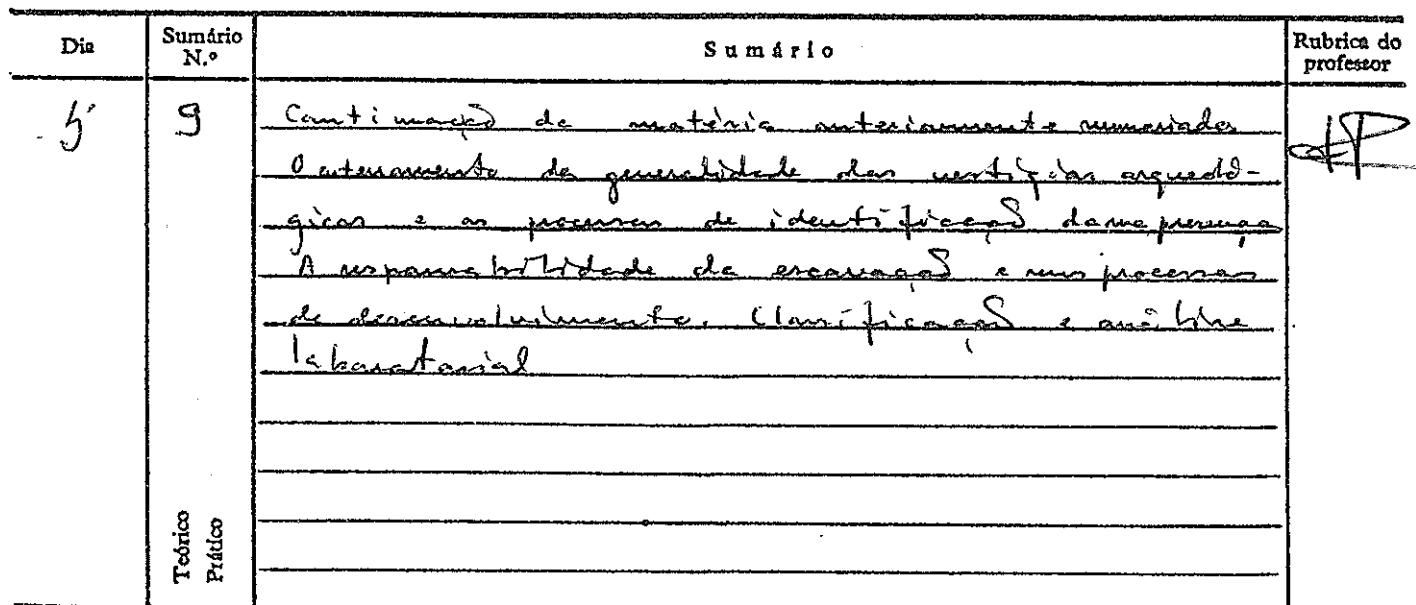 Dia
Sumário N.º
Sumário
Rubrica do professor
5
9
Continuação da matéria anteriormente sumariada
O aterramento da generalidade dos vestígios arqueoló-
gicos e os processos de identificação da sua presença
A responsabilidade da escavação e seus processos
de desenvolvimento. Classificação e análise
laboratorial
Teórico
Prático